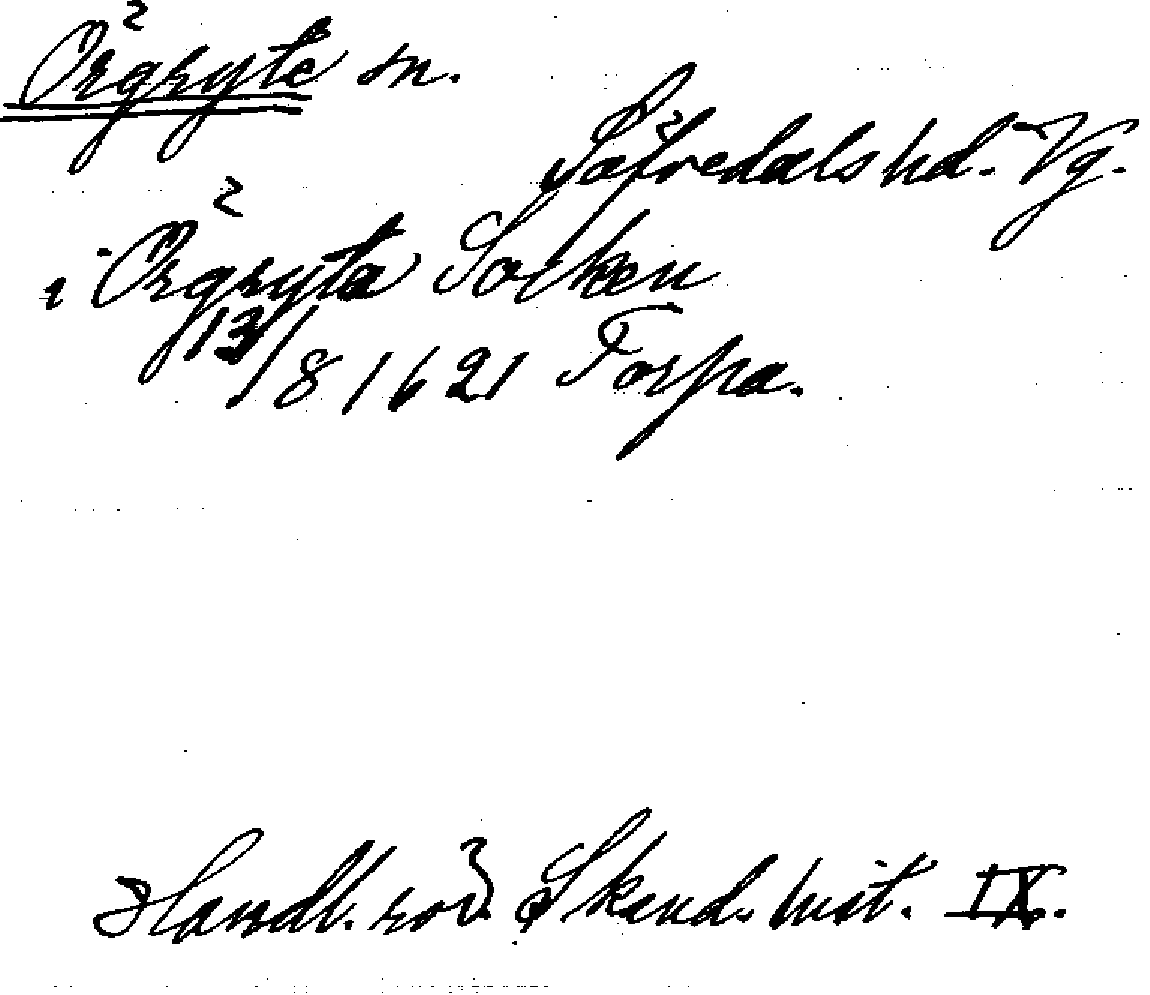 Örgryte sn.
Sävedals hd. Vg.
i Örgryta Socken
13/8 1621 Torpa.
Handl. rör. Skand. hist. IX.